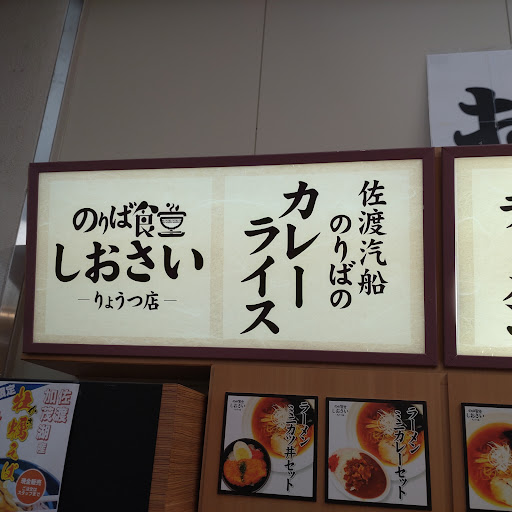 のりば食堂
しおさい
りょうつ店
佐渡汽船
のりばの
カレー
ライス
ラーメン
ミニカツ丼セット
ラーメン
ミニカレーセット
しおさい
佐渡
加茂湖産